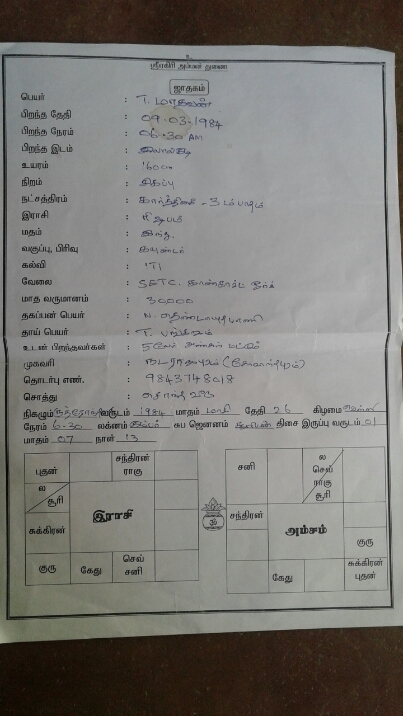 ஸ்ரீரகிரி அம்மன் துணை
ஜாதகம்
பெயர் : T. மாதவன்
பிறந்த தேதி : 09.03.1984
பிறந்த நேரம் : 06.30 AM
பிறந்த இடம் :
உயரம் :
நிறம் : சிகப்பு
நட்சத்திரம் : கார்த்திகை - 3 ம் பாதம்
இராசி : ரிஷபம்
மதம் : இந்து.
வகுப்பு, பிரிவு : கவுண்டர்
கல்வி : ITI
வேலை : SETC.
மாத வருமானம் : 30,000
தகப்பன் பெயர் : N. தெண்டாயுதபாணி
தாய் பெயர் : T.
உடன் பிறந்தவர்கள் : 5
முகவரி :
தொடர்பு எண். : 9843748018
சொத்து : சொந்த வீடு
நிகழும் வருடம் 1984 மாதம் மாசி தேதி 26 கிழமை வெள்ளி
நேரம் 6-30 லக்னம் கும்பம் சுப ஜெனனம் திசை இருப்பு வருடம் 01
மாதம் 07 நாள் 13
புதன் சந்திரன் ராகு
ல சூரி
இராசி
சுக்கிரன்
குரு கேது செவ் சனி
சனி ல செவ் ராகு சூரி
சந்திரன்
அம்சம்
குரு
கேது சுக்கிரன் புதன்